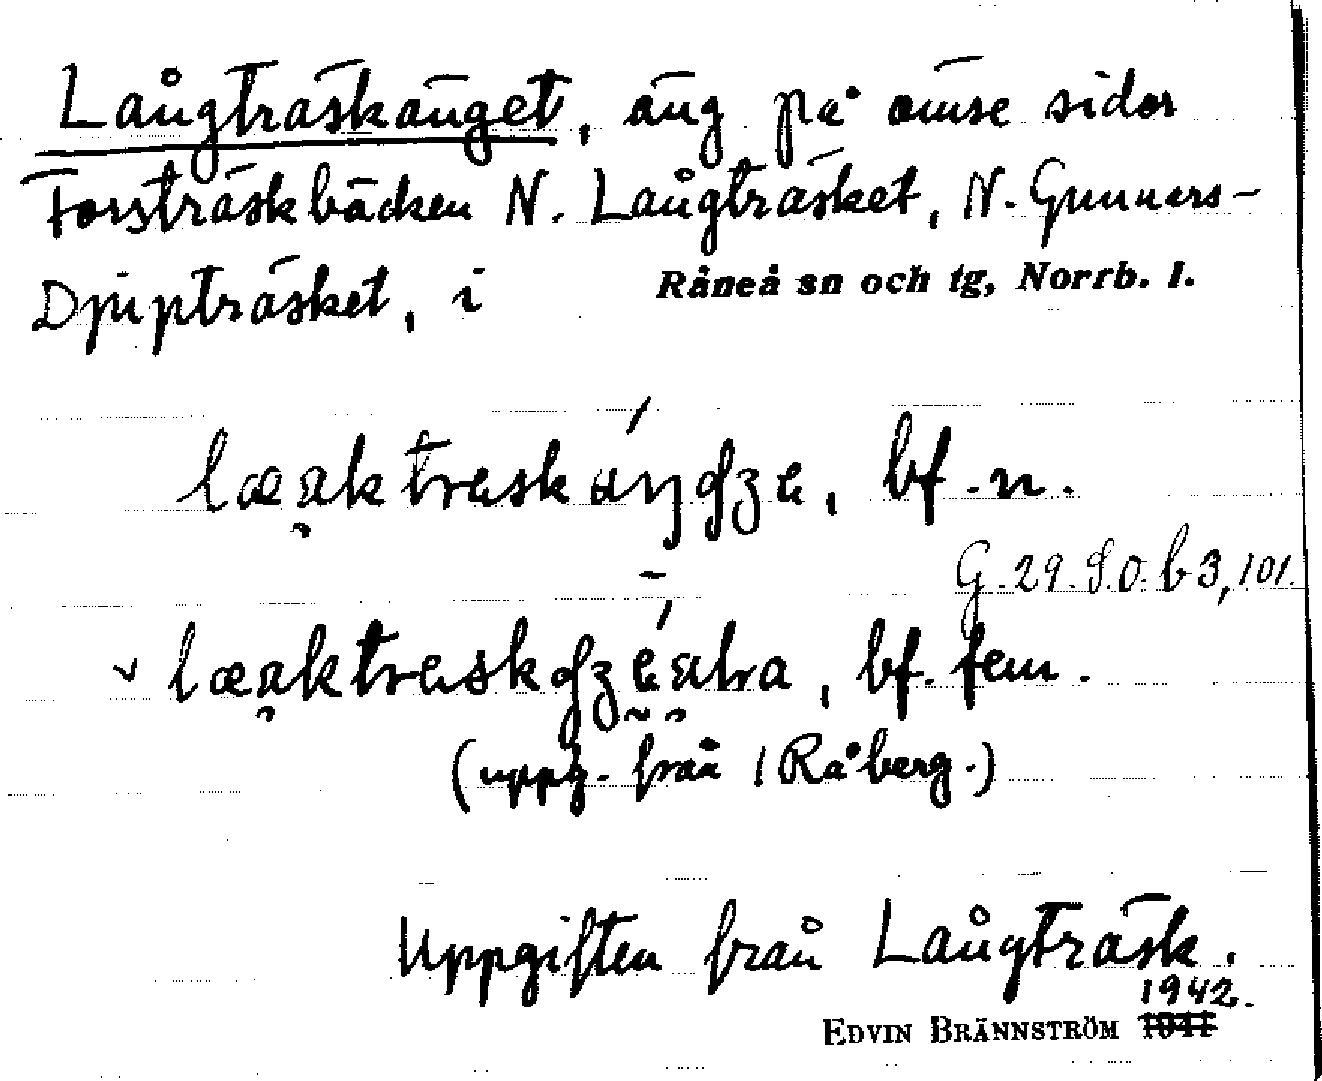 Långträskänget, äng på ömse sidor
Forsträskbäcken N. Långträsket, N. Gunnars-
Djupträsket, i Råneå sn och tg, Norrb. l.
bf. n.
G. 29. S.O. b 3, 101.
bf. fem.
(uppg. från Råberg.)
Uppgiften från Långträsk.
1942.
EDVIN BRÄNNSTRÖM 1941